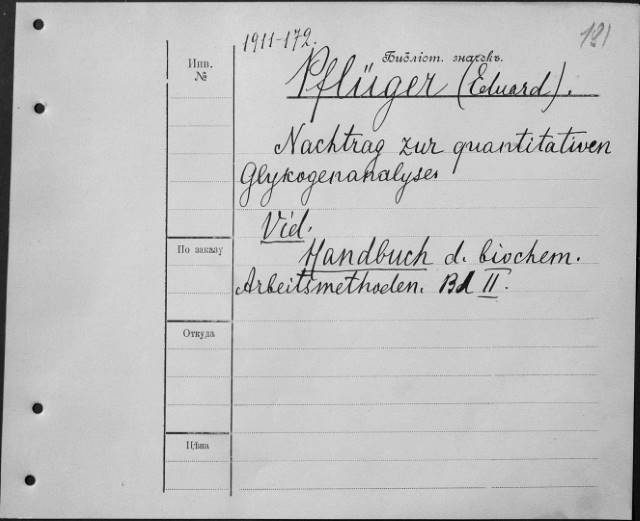 1911-172.
181
Инв.
№
Библіот. значекъ.
Pflüger (Eduard).
Nachtrag zur quantitativen
Glykogenanalyse.
Vid.
По заказу
Handbuch d. biochem.
Arbeitsmethoden. Bd II.
Откуда
Цѣна